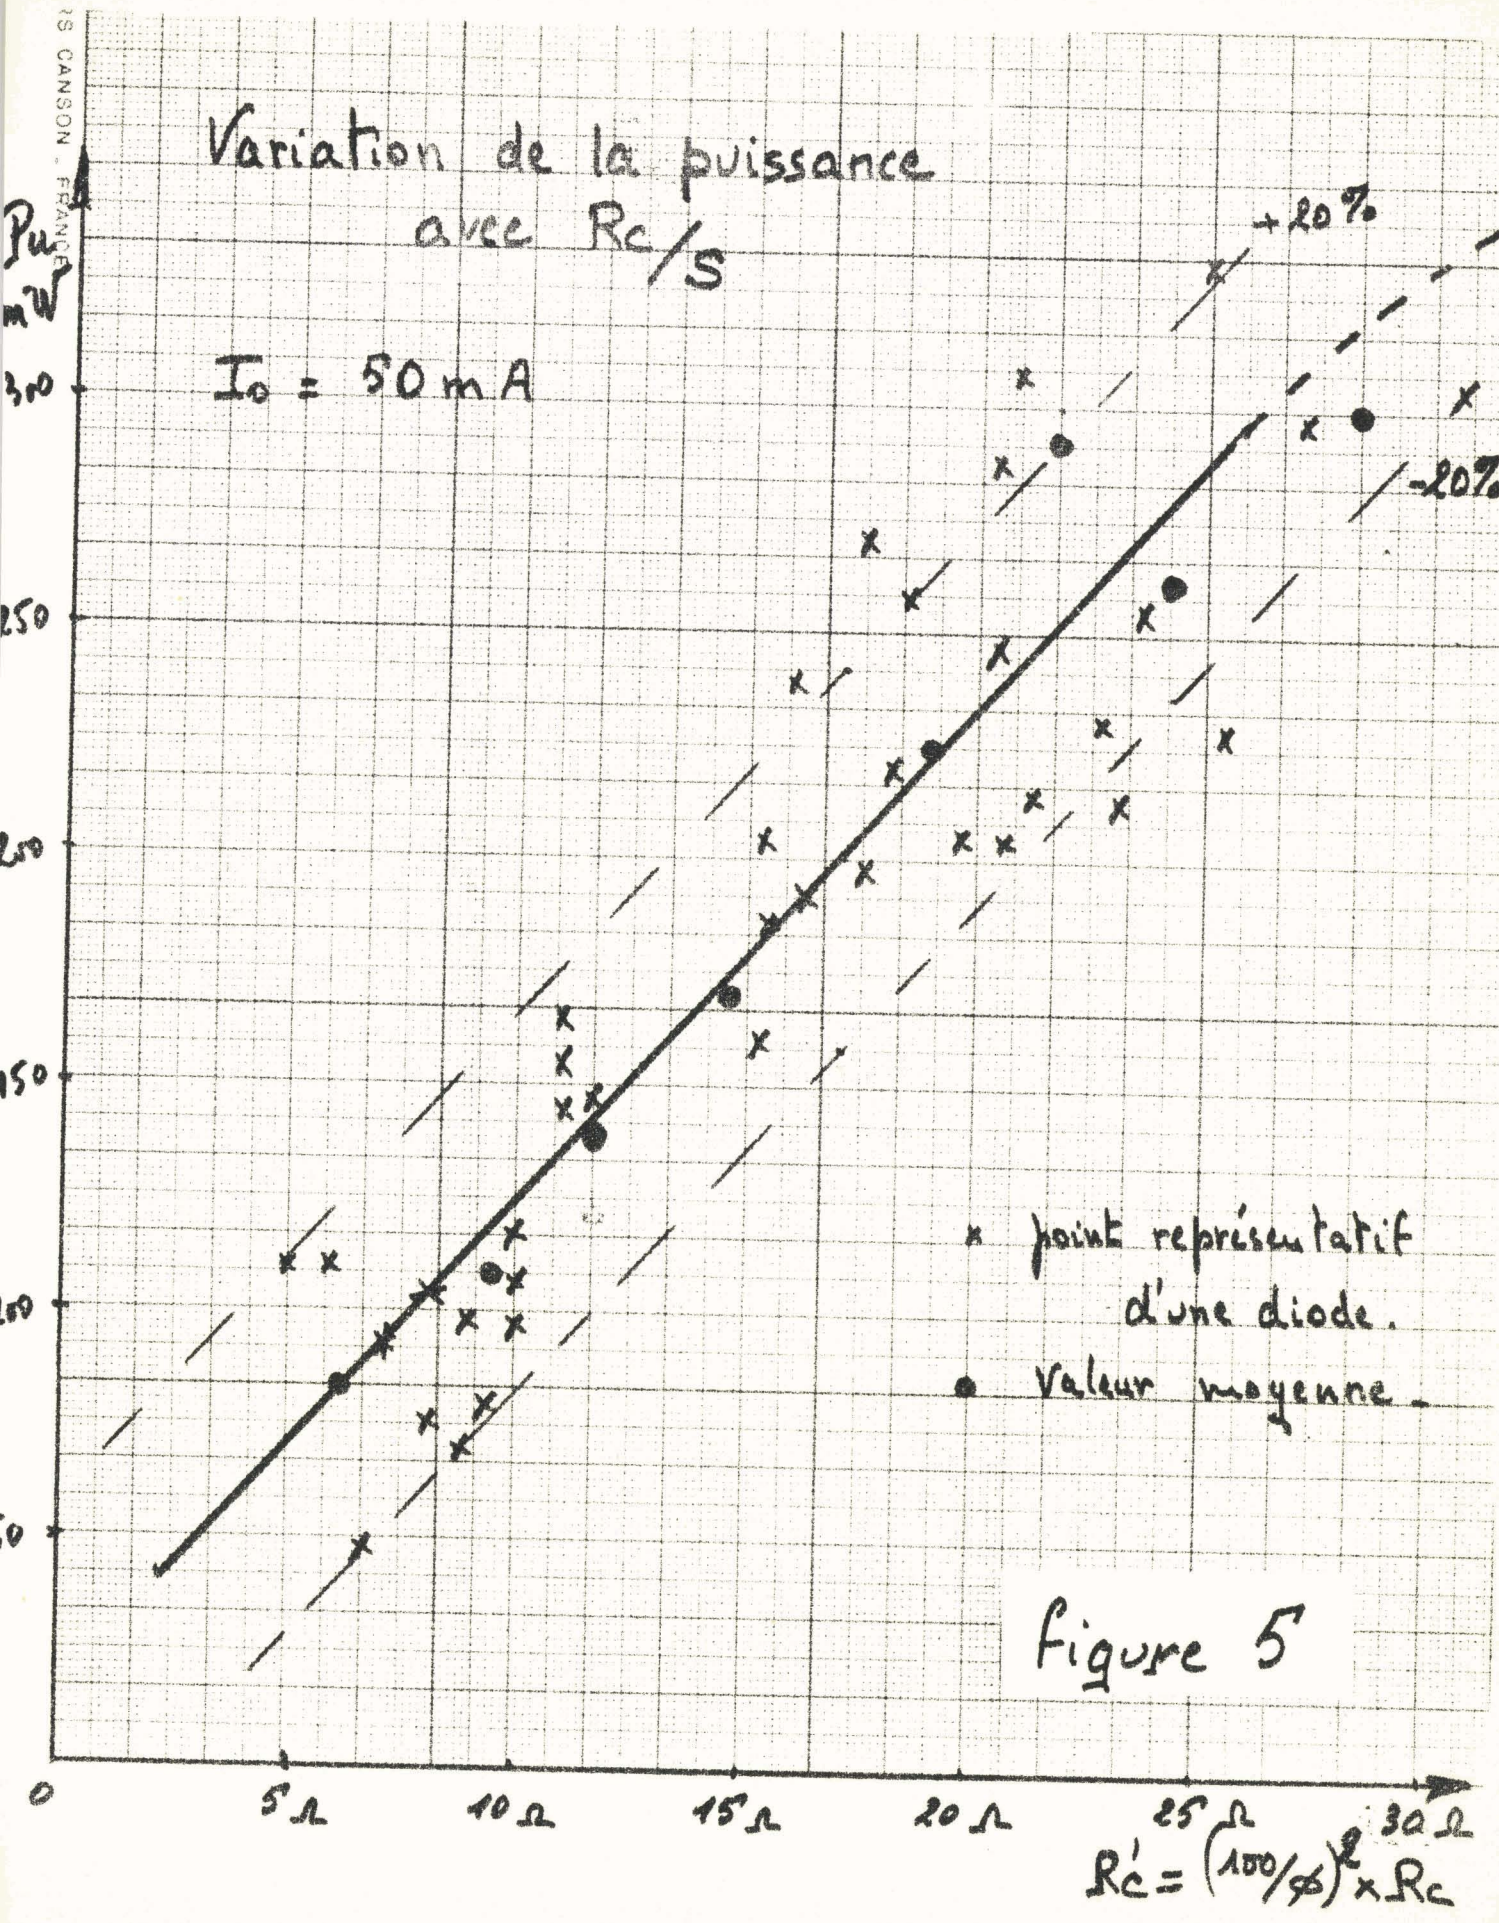 RS CANSON . FRANCE
Variation de la puissance
avec Rc/S
Pu
mW
I₀ = 50 mA
+20%
-20%
300
250
200
150
100
50
x point représentatif
d'une diode.
● Valeur moyenne -
figure 5
0 5Ω 10Ω 15Ω 20Ω 25Ω 30Ω
R'c = (100/ø)² x Rc